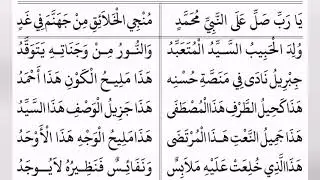 يَا رَبِّ صَلِّ عَلَى النَّبِيِّ مُحَمَّدٍ مُنْجِي الْخَلَائِقِ مِنْ جَهَنَّمَ فِي غَدٍ
وُلِدَ الْحَبِيبُ السَّيِّدُ الْمُتَعَبِّدُ وَالنُّورُ مِنْ وَجَنَاتِهِ يَتَوَقَّدُ
جِبْرِيلُ نَادَى فِي مَنَصَّةِ حُسْنِهِ هَذَا مَلِيحُ الْكَوْنِ هَذَا أَحْمَدُ
هَذَا كَحِيلُ الطَّرْفِ هَذَا الْمُصْطَفَى هَذَا جَزِيلُ الْوَصْفِ هَذَا السَّيِّدُ
هَذَا جَمِيلُ النَّعْتِ هَذَا الْمُرْتَضَى هَذَا مَلِيحُ الْوَجْهِ هَذَا الْأَوْحَدُ
هَذَا الَّذِي خُلِعَتْ عَلَيْهِ مَلَابِسٌ وَنَفَائِسٌ فَنَظِيرُهُ لَا يُوجَدُ